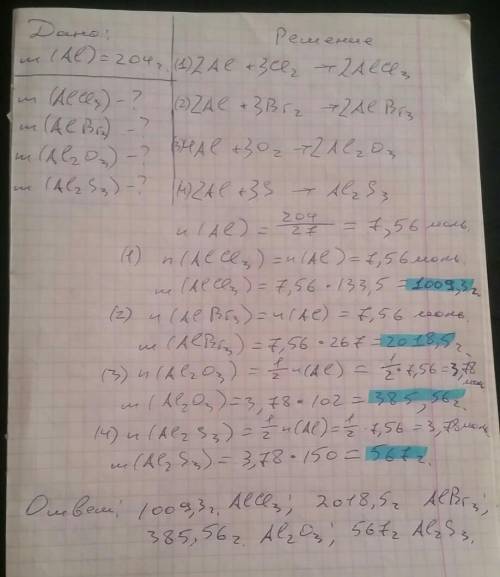 Дано:
m(Al)=204г.
m(AlCl₃)-?
m(AlBr₃)-?
m(Al₂O₃)-?
m(Al₂S₃)-?
Решение
(1) 2Al + 3Cl₂ → 2AlCl₃
(2) 2Al + 3Br₂ → 2AlBr₃
(3) 4Al + 3O₂ → 2Al₂O₃
(4) 2Al + 3S → Al₂S₃
n(Al) = 204/27 = 7,56 моль
(1) n(AlCl₃)=n(Al)=7,56 моль.
m(AlCl₃)=7,56·133,5=1009,3г.
(2) n(AlBr₃)=n(Al)=7,56 моль.
m(AlBr₃)=7,56·267=2018,5г
(3) n(Al₂O₃)=1/2 n(Al)=1/2·7,56=3,78 моль
m(Al₂O₃)=3,78·102=385,56г
(4) n(Al₂S₃)=1/2 n(Al)=1/2·7,56=3,78 моль
m(Al₂S₃)=3,78·150=567г.
Ответ: 1009,3г. AlCl₃; 2018,5г AlBr₃;
385,56г. Al₂O₃; 567г Al₂S₃.